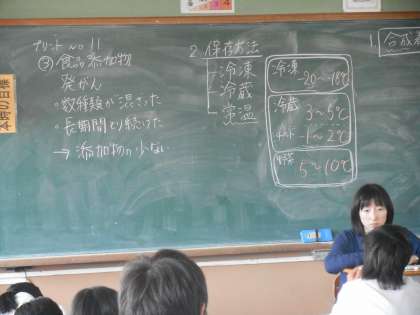 プリント no 11
③ 食品添加物
発がん
・数種類が混ざった
・長期間とり続けた
→ 添加物の少ない
2. 保存方法
冷凍
冷蔵
常温
冷凍
-20〜-18℃
冷蔵 3〜5℃
チルド -1〜2℃
野菜 5〜10℃
1. 合成着
本時の目標